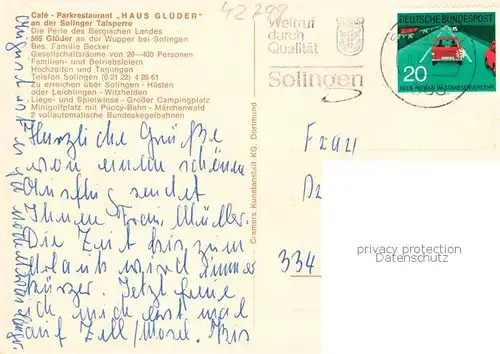 42799
Café - Parkrestaurant „HAUS GLÜDER"
an der Solinger Talsperre
Die Perle des Bergischen Landes
565 Glüder an der Wupper bei Solingen
Bes. Familie Becker
Gesellschaftsräume von 20—400 Personen
Familien- und Betriebsfeiern
Hochzeiten und Tagungen
Telefon Solingen (0 21 22) 4 26 61
Zu erreichen über Solingen - Hästen
oder Leichlingen - Witzhelden
Liege- und Spielwiese - Großer Campingplatz
Minigolfplatz mit Puccy-Bahn - Märchenwald
2 vollautomatische Bundeskegelbahnen
Herzliche Grüße
von einem schönen
Ausflug sendet
Ihnen Frau Müller.
Die Zeit bis zum
Urlaub wird immer
kürzer. Jetzt freue
ich mich erst mal
auf Zell/Mosel. Bis
August
Cramers Kunstanstalt KG. Dortmund
Weltruf
durch
Qualität
Solingen
DEUTSCHE BUNDESPOST
20
NEUE REGELN IM STRASSENVERKEHR
Frau
334
privacy protection
Datenschutz